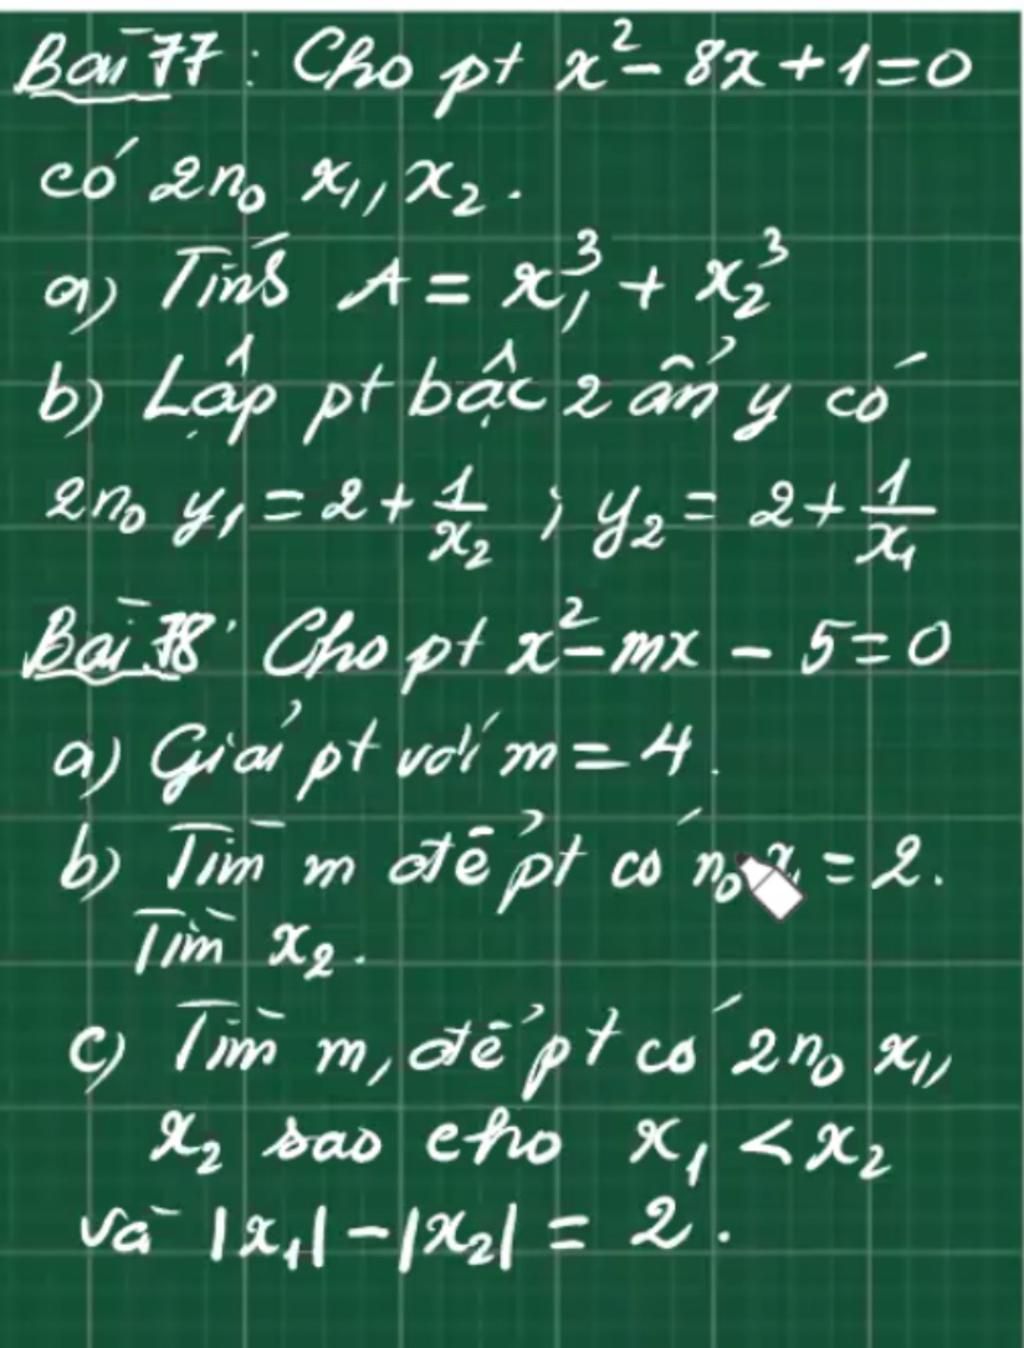 Bài 77: Cho pt x² - 8x + 1 = 0
có 2n₀ x₁, x₂.
a) Tính A = x₁³ + x₂³
b) Lập pt bậc 2 ẩn y có
2n₀ y₁ = 2 + 1/x₂ ; y₂ = 2 + 1/x₁
Bài 78: Cho pt x² - mx - 5 = 0
a) Giải pt với m = 4.
b) Tìm m để pt có n₀ x₁ = 2.
Tìm x₂.
c) Tìm m, để pt có 2n₀ x₁,
x₂ sao cho x₁ < x₂
và |x₁| - |x₂| = 2.